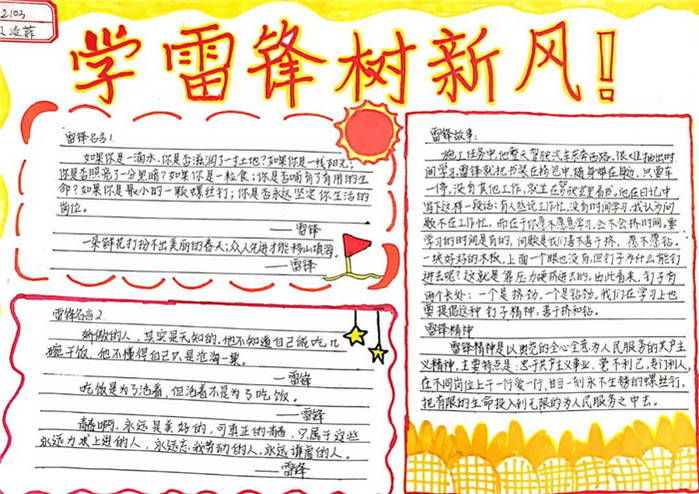 2103
学雷锋树新风!
雷锋名言1.
如果你是一滴水,你是否滋润了一寸土地?如果你是一线阳光,
你是否照亮了一分黑暗?如果你是一粒食;你是否哺育了有用的生
命?如果你是最小的一颗螺丝钉;你是否永远坚定你生活的
岗位。
——雷锋
一朵鲜花打扮不出美丽的春天;众人先进才能移山填海。
——雷锋
雷锋名言2.
骄傲的人,其实是无知的,他不知道自己能吃几
碗干饭,他不懂得自己只是沧海一粟。
——雷锋
吃饭是为了活着,但活着不是为了吃饭。
——雷锋
青春啊,永远是美好的,可真正的青春,只属于这些
永远力求上进的人,永远忘我劳动的人,永远谦虚的人。
——雷锋
雷锋故事:
施工任务中,他整天驾驶汽车东奔西跑,很难抽出时
间学习,雷锋就把书装在挎包里,随身带在身边,只要车
一停,没有其他工作,就坐在驾驶室里看书,他在日记中
写下这样一段话:有人总说工作忙,没有时间学习,我认为问
题不在工作忙,而在于你愿不愿意学习,会不会挤时间,要
学习的时间是有的,问题是我们善不善于挤,愿不愿钻。
一块好好的木板,上面一个眼也没有,但钉子为什么能钉
进去呢?这就是靠压力硬挤进去的,由此看来,钉子有
两个长处:一个是挤劲,一个是钻劲,我们在学习上也
要提倡这种钉子精神,善于挤和钻。
雷锋精神
雷锋精神是以奥范的全心全意为人民服务的共产主
义精神,主要特点是:忠于共产主义事业,毫不利己,专门利人,
在不同岗位上干一行爱一行,甘当一刻永不生锈的螺丝钉,
把有限的生命投入到无限的为人民服务之中去。